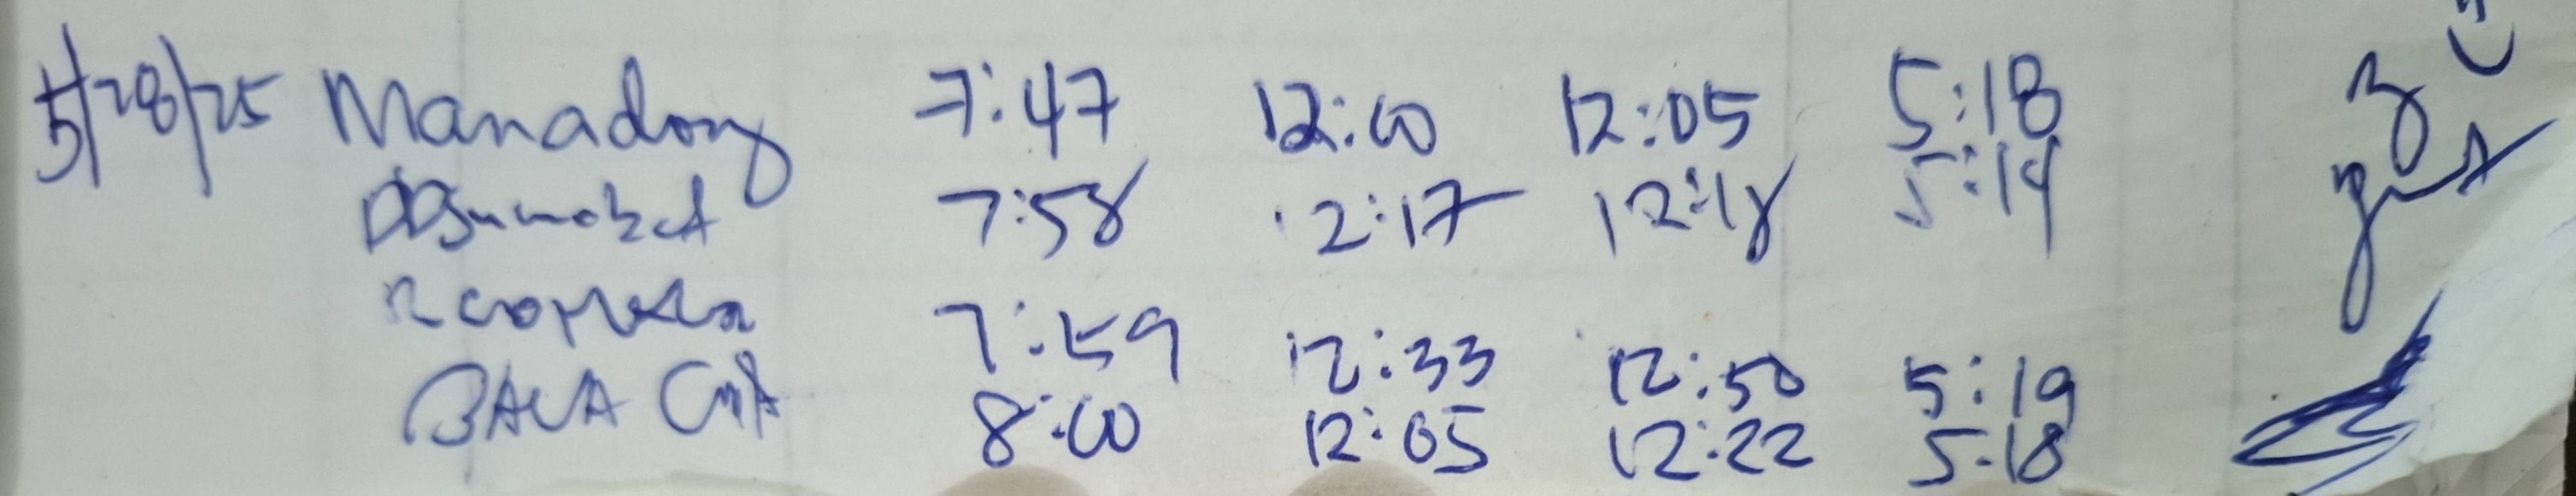 5/28/25 Manadong 7:47 12:00 12:05 5:18
7:58 12:17 12:18 5:14
7:59 12:33 12:50 5:19
8:00 12:05 12:22 5:18